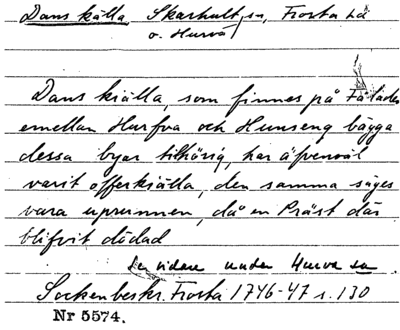 Dans källa, Skarhult sn, Frosta hd
o. Hurva
Dans kiälla, som finnes på fäladen
emellan Hurfva och Hunseng bägga
dessa byar tilhörig, har äfvenväl
varit offerkiälla, den samma säges
vara uprunnen, då en Präst där
blifvit dödad
Se vidare under Hurva sn
Sockenbeskr. Frosta 1746-47 s. 130
Nr 5574.